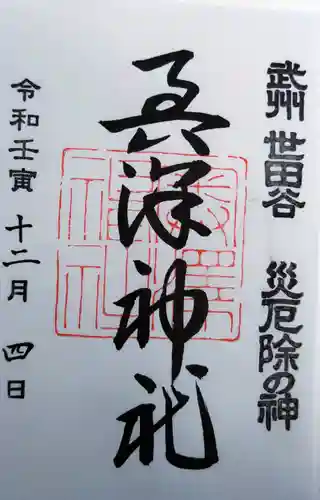 武州 世田谷 災厄除の神
奥澤神社
奥澤
神社
令和壬寅 十二月 四日